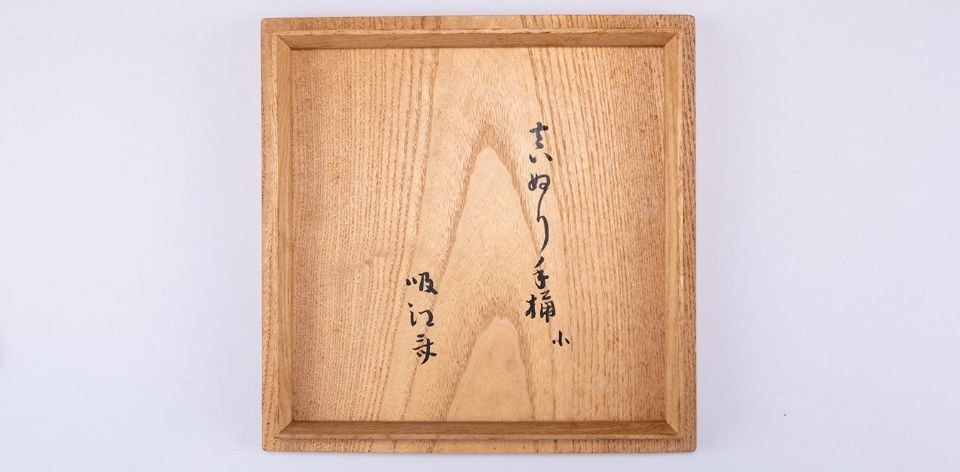 真ぬり手桶 小
吸江斎